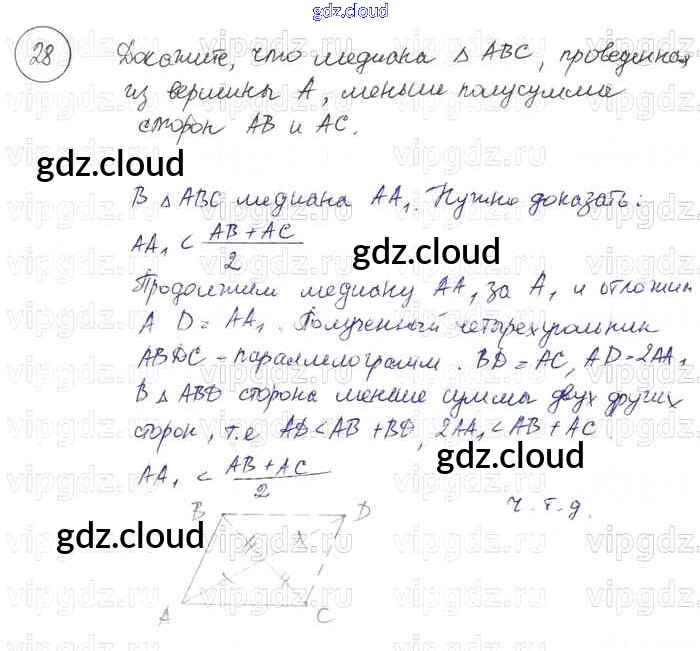 gdz.cloud
28
Докажите, что медиана △ ABC, проведенная
из вершины A, меньше полусуммы
сторон AB и AC.
gdz.cloud
В △ ABC медиана AA₁. Нужно доказать:
AA₁ < AB + AC / 2
gdz.cloud
Продолжим медиану AA₁ за A₁ и отложим
A D = AA₁. Полученный четырехугольник
ABDC - параллелограмм. BD = AC, AD = 2AA₁
В △ ABD сторона меньше суммы двух других
сторон, т.е AD < AB + BD, 2AA₁ < AB + AC.
gdz.cloud
AA₁ < AB + AC / 2
ч. т. д.
B D
gdz.cloud
A C